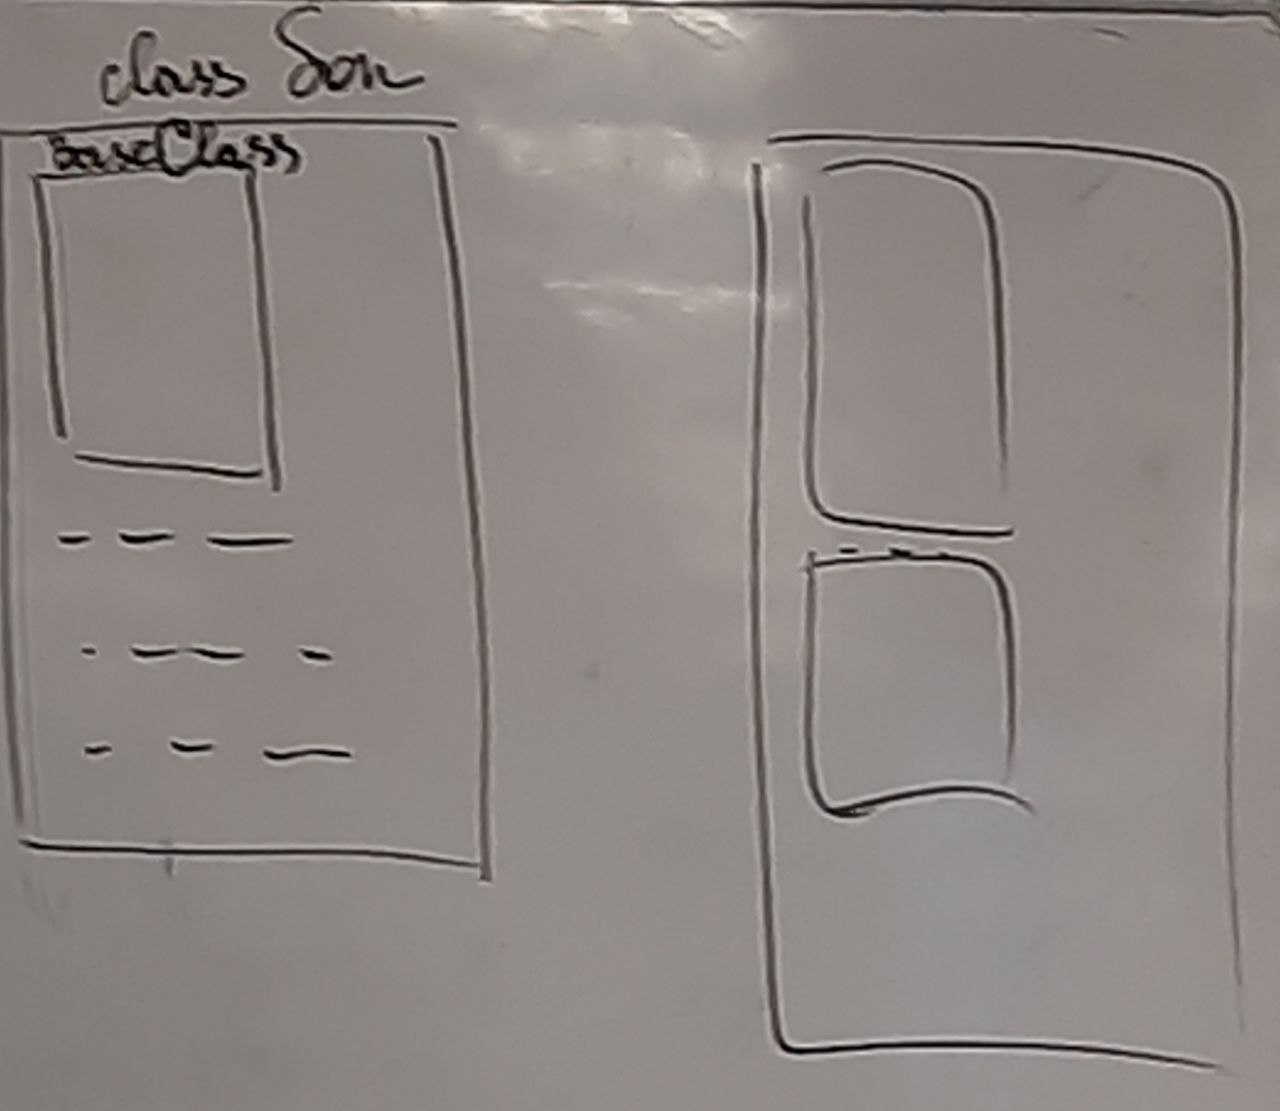 class Son
BaseClass